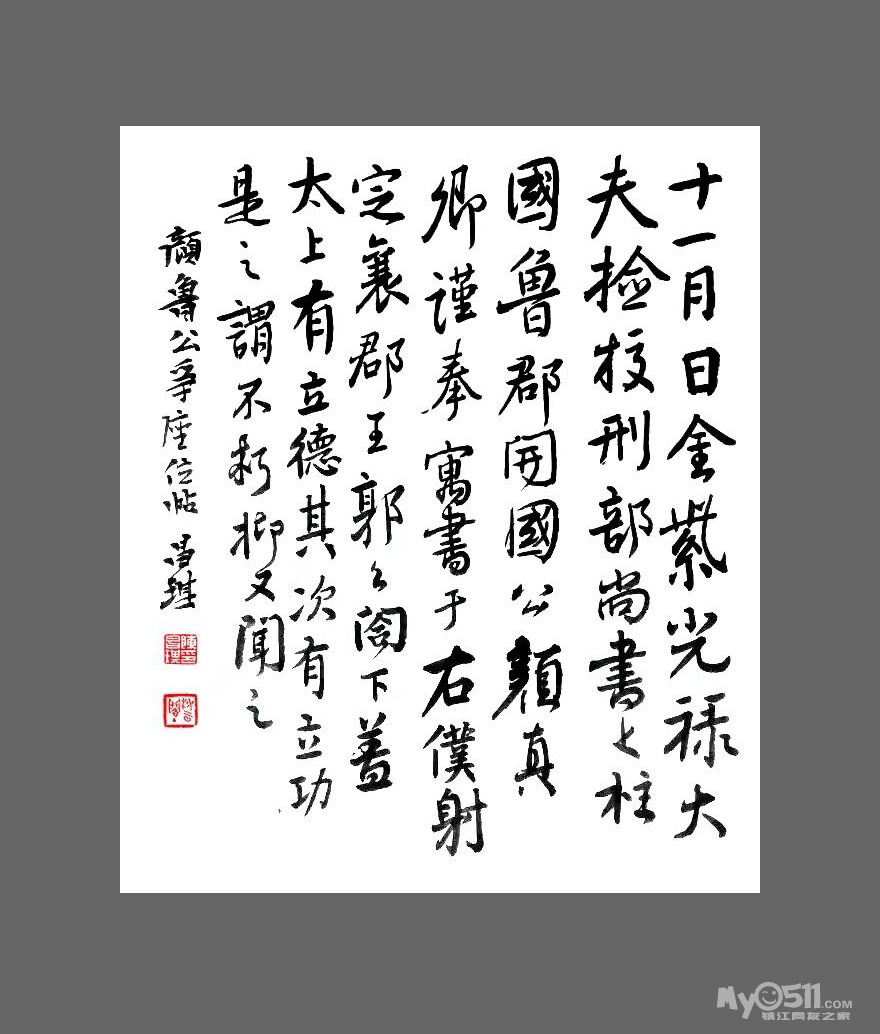 十一月日金紫光禄大
夫撿挍刑部尚書上柱
國魯郡開國公顏真
卿謹奉寓書于右僕射
定襄郡王郭公閤下蓋
太上有立德其次有立功
是之謂不朽抑又聞之
顏魯公爭座位帖 昌琪
My0511.COM
镇江网友之家